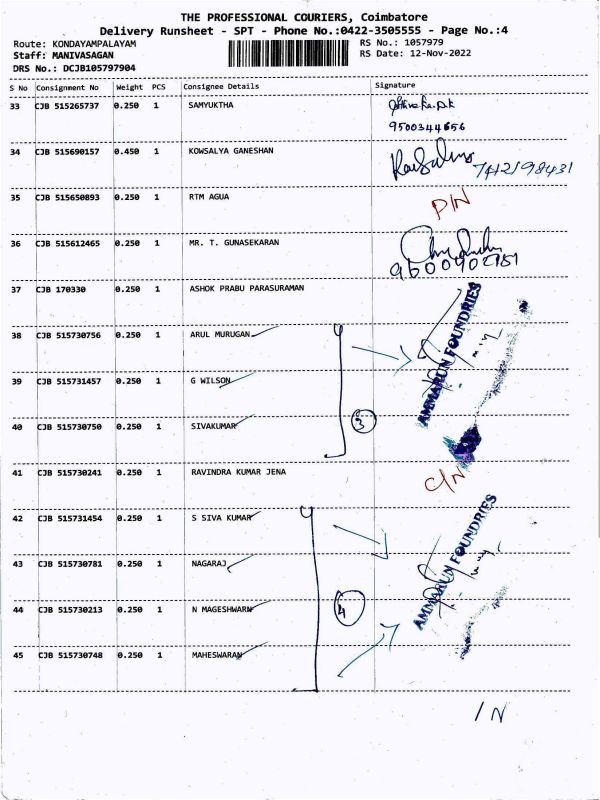 THE PROFESSIONAL COURIERS, Coimbatore
Delivery Runsheet - SPT - Phone No.:0422-3505555 - Page No.:4
Route: KONDAYAMPALAYAM
Staff: MANIVASAGAN
DRS No.: DCJB105797904
RS No.: 1057979
RS Date: 12-Nov-2022
S No Consignment No Weight PCS Consignee Details Signature
33 CJB 515265737 0.250 1 SAMYUKTHA
9500344656
34 CJB 515690157 0.450 1 KOWSALYA GANESHAN
7412198431
35 CJB 515650893 0.250 1 RTM AGUA P/N
36 CJB 515612465 0.250 1 MR. T. GUNASEKARAN
37 CJB 170330 0.250 1 ASHOK PRABU PARASURAMAN
38 CJB 515730756 0.250 1 ARUL MURUGAN
AMMARUN FOUNDRIES
39 CJB 515731457 0.250 1 G WILSON
40 CJB 515730750 0.250 1 SIVAKUMAR 3
41 CJB 515730241 0.250 1 RAVINDRA KUMAR JENA C/N
42 CJB 515731454 0.250 1 S SIVA KUMAR
43 CJB 515730781 0.250 1 NAGARAJ
AMMARUN FOUNDRIES
44 CJB 515730213 0.250 1 N MAGESHWARN 4
45 CJB 515730748 0.250 1 MAHESWARAN
/ N